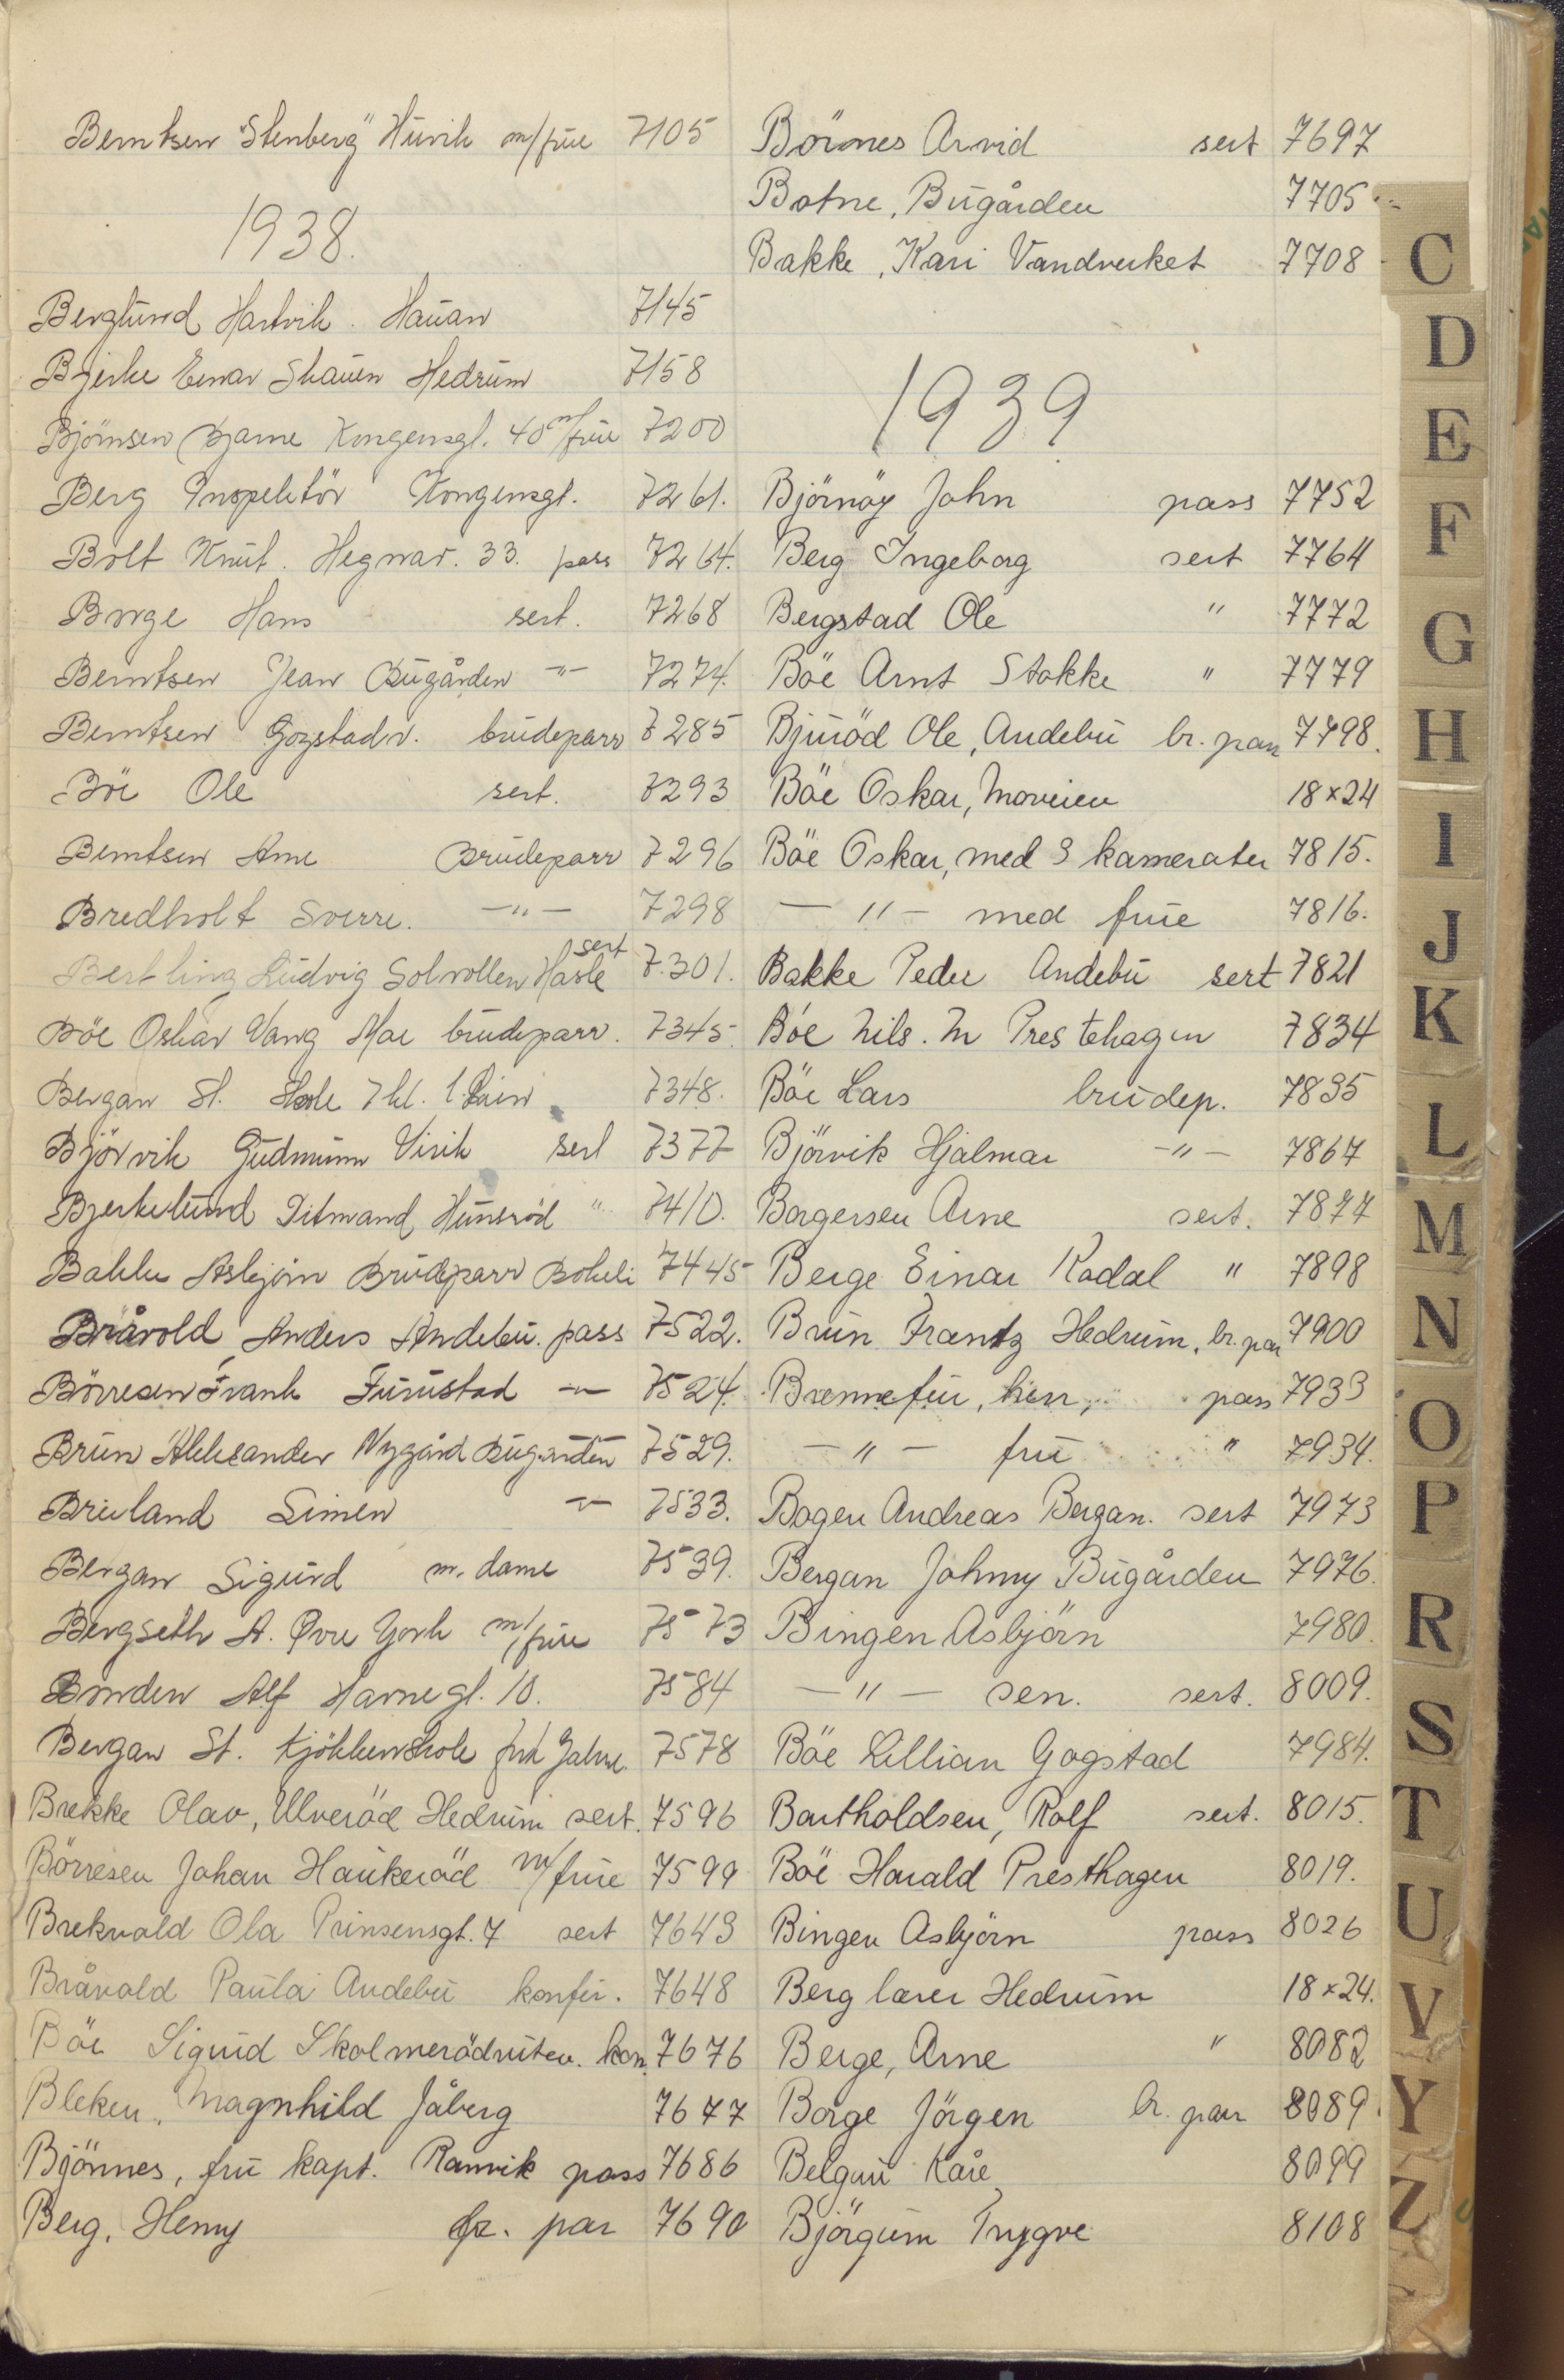 Berntsen "Stenberg" Huvik m/frue 7105
1938.
Berglund Hartvik. Hauan 7145
Bjerke Einar Skauen Hedrum 7158
Björnsen Bjarne Kongensgt. 40 m/frue 7200
Berg Inspektör Kongensgt. 7261.
Bolt Knut. Hegnav. 33. pass 7264.
Borge Hans sert. 7268
Berntsen Jean Bugården -"- 7274.
Berntsen Gogstadv. brudeparr 7285
Böe Ole sert. 7293
Berntsen Arne Brudeparr 7296
Bredholt Sverre. -"- 7298
Bertling Ludvig Solvollen Hasle sert 7301.
Böe Oskar Vang Moe brudeparr. 7345.
Bergan Sk. 7 kl. 7348.
Björvik Gudmunn Virik sert 7377
Bjerkelund Ditmand Hunsröd " 7410.
Bakke Asbjörn Brudeparr Bokeli 7445
Bråvold Anders Andebu. pass 7522.
Börresen Frank Furustad -"- 7524.
Brun Aleksander Nygård Bugården 7529.
Breiland Simen -"- 7533.
Bergan Sigurd m. dame 7539.
Bergseth A. Øvre Gjork m/frue 7573
Alf Havnegt. 10. 7584
Bergan St. Kjökkenskole frk 7578
Brekke Olav, Ulveröd Hedrum sert. 7596
Börresen Johan Haukeröd m/frue 7599
Brekvold Ola Prinsensgt. 7 sert 7643
Bråvold Paula Andebu konfir. 7648
Böe Sigurd Skolmerödruten. kon. 7676
Bleken, Magnhild Jåberg 7677
Bjönnes, fru kapt. Ranvik pass 7686
Berg, Henry br. par 7690
Börnes Arvid sert 7697
Botne, Bugården 7705
Bakke, Kari Vandverket 7708
1939
Björnöy John pass 7752
Berg Ingeborg sert 7764
Bergstad Ole " 7772
Böe Arnt Stokke " 7779
Bjuröd Ole, Andebu br. par 7798.
Böe Oskar, Moveien 18x24
Böe Oskar, med 3 kamerater 7815.
-"- med frue 7816.
Bakke Peder Andebu sert 7821
Böe Nils. M Prestehagen 7834
Böe Lars brudep. 7835
Björvik Hjalmar -"- 7867
Borgersen Arne sert. 7877
Berge Einar Kodal " 7898
Brun Frantz Hedrum, br. par 7900
Brennefur, herr, pass 7933
-"- fru " 7934.
Bogen Andreas Bergan. sert 7973
Bergan Johnny Bugården 7976.
Bingen Asbjörn 7980.
-"- sen. sert. 8009.
Böe Lillian Gogstad 7984.
Bartholdsen, Rolf sert. 8015.
Böe Harald Presthagen 8019.
Bingen Asbjörn pass 8026
Berg lærer Hedrum 18x24.
Berge, Arne " 8082
Borge Jörgen br. par 8089.
Kåre 8099
Björgum Trygve 8108
C
D
E
F
G
H
I
J
K
L
M
N
O
P
R
S
T
U
V
Y
Z